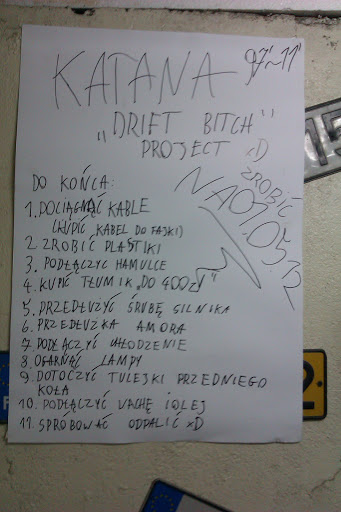 KATANA 97'-11'
„DRIFT BITCH”
PROJECT xD
ZROBIĆ
NA 01.05.12
DO KOŃCA:
1. DOCIĄGNĄĆ KABLE
(KUPIĆ KABEL DO FAJKI)
2 ZROBIĆ PLASTIKI
3. PODŁĄCZYĆ HAMULCE
4. KUPIĆ TŁUMIK „DO 400zł”
5. PRZEDŁUŻYĆ ŚRUBĘ SILNIKA
6. PRZEDŁUŻKA AMORA
7 PODŁĄCZYĆ CHŁODZENIE
8. OGARNĄĆ LAMPY
9. DOTOCZYĆ TULEJKI PRZEDNIEGO
KOŁA
10. PODŁĄCZYĆ WACHĘ I OLEJ
11. SPRÓBOWAĆ ODPALIĆ xD
15
2